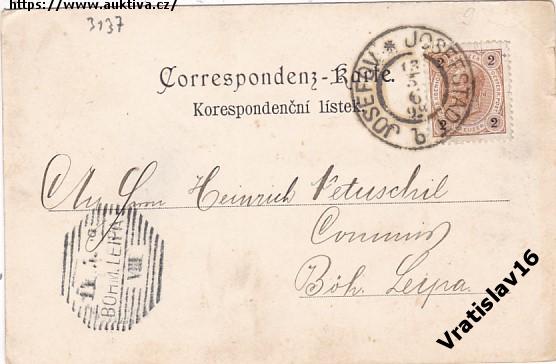 https://www.auktiva.cz/
3137
Correspondenz-Karte.
Korespondenční lístek.
JOSEFSTADT
JOSEFOV
b
98
2 2
2 2
An Hrn Heinrich Vetuschil
Commis
Böh. Leipa.
BÖHM. LEIPA
VIII
Vratislav16